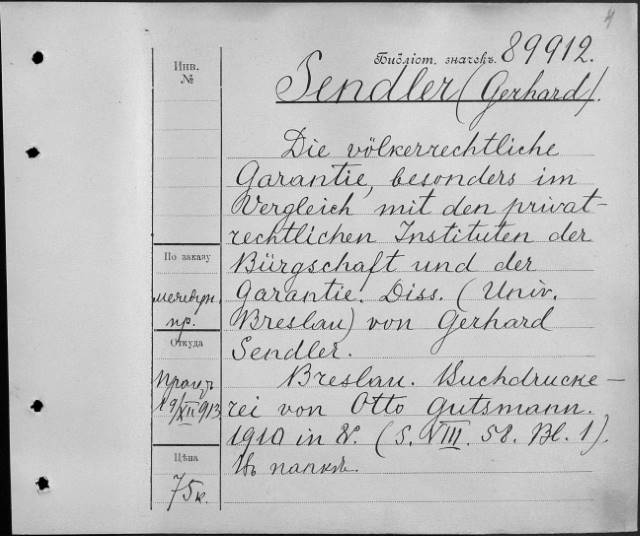 4
Библіот. значекъ. 89912.
Sendler (Gerhard).
Инв.
№
Die völkerrechtliche
Garantie, besonders im
Vergleich mit den privat-
rechtlichen Instituten der
Bürgschaft und der
Garantie. Diss. (Univ.
Breslau) von Gerhard
Sendler.
Breslau. Buchdrucke-
rei von Otto Gutsmann.
1910 in 8. (S. VIII. 58. Bl. 1).
Въ папкѣ.
По заказу
пр.
Откуда
19/XII 913
Цѣна
75 к.